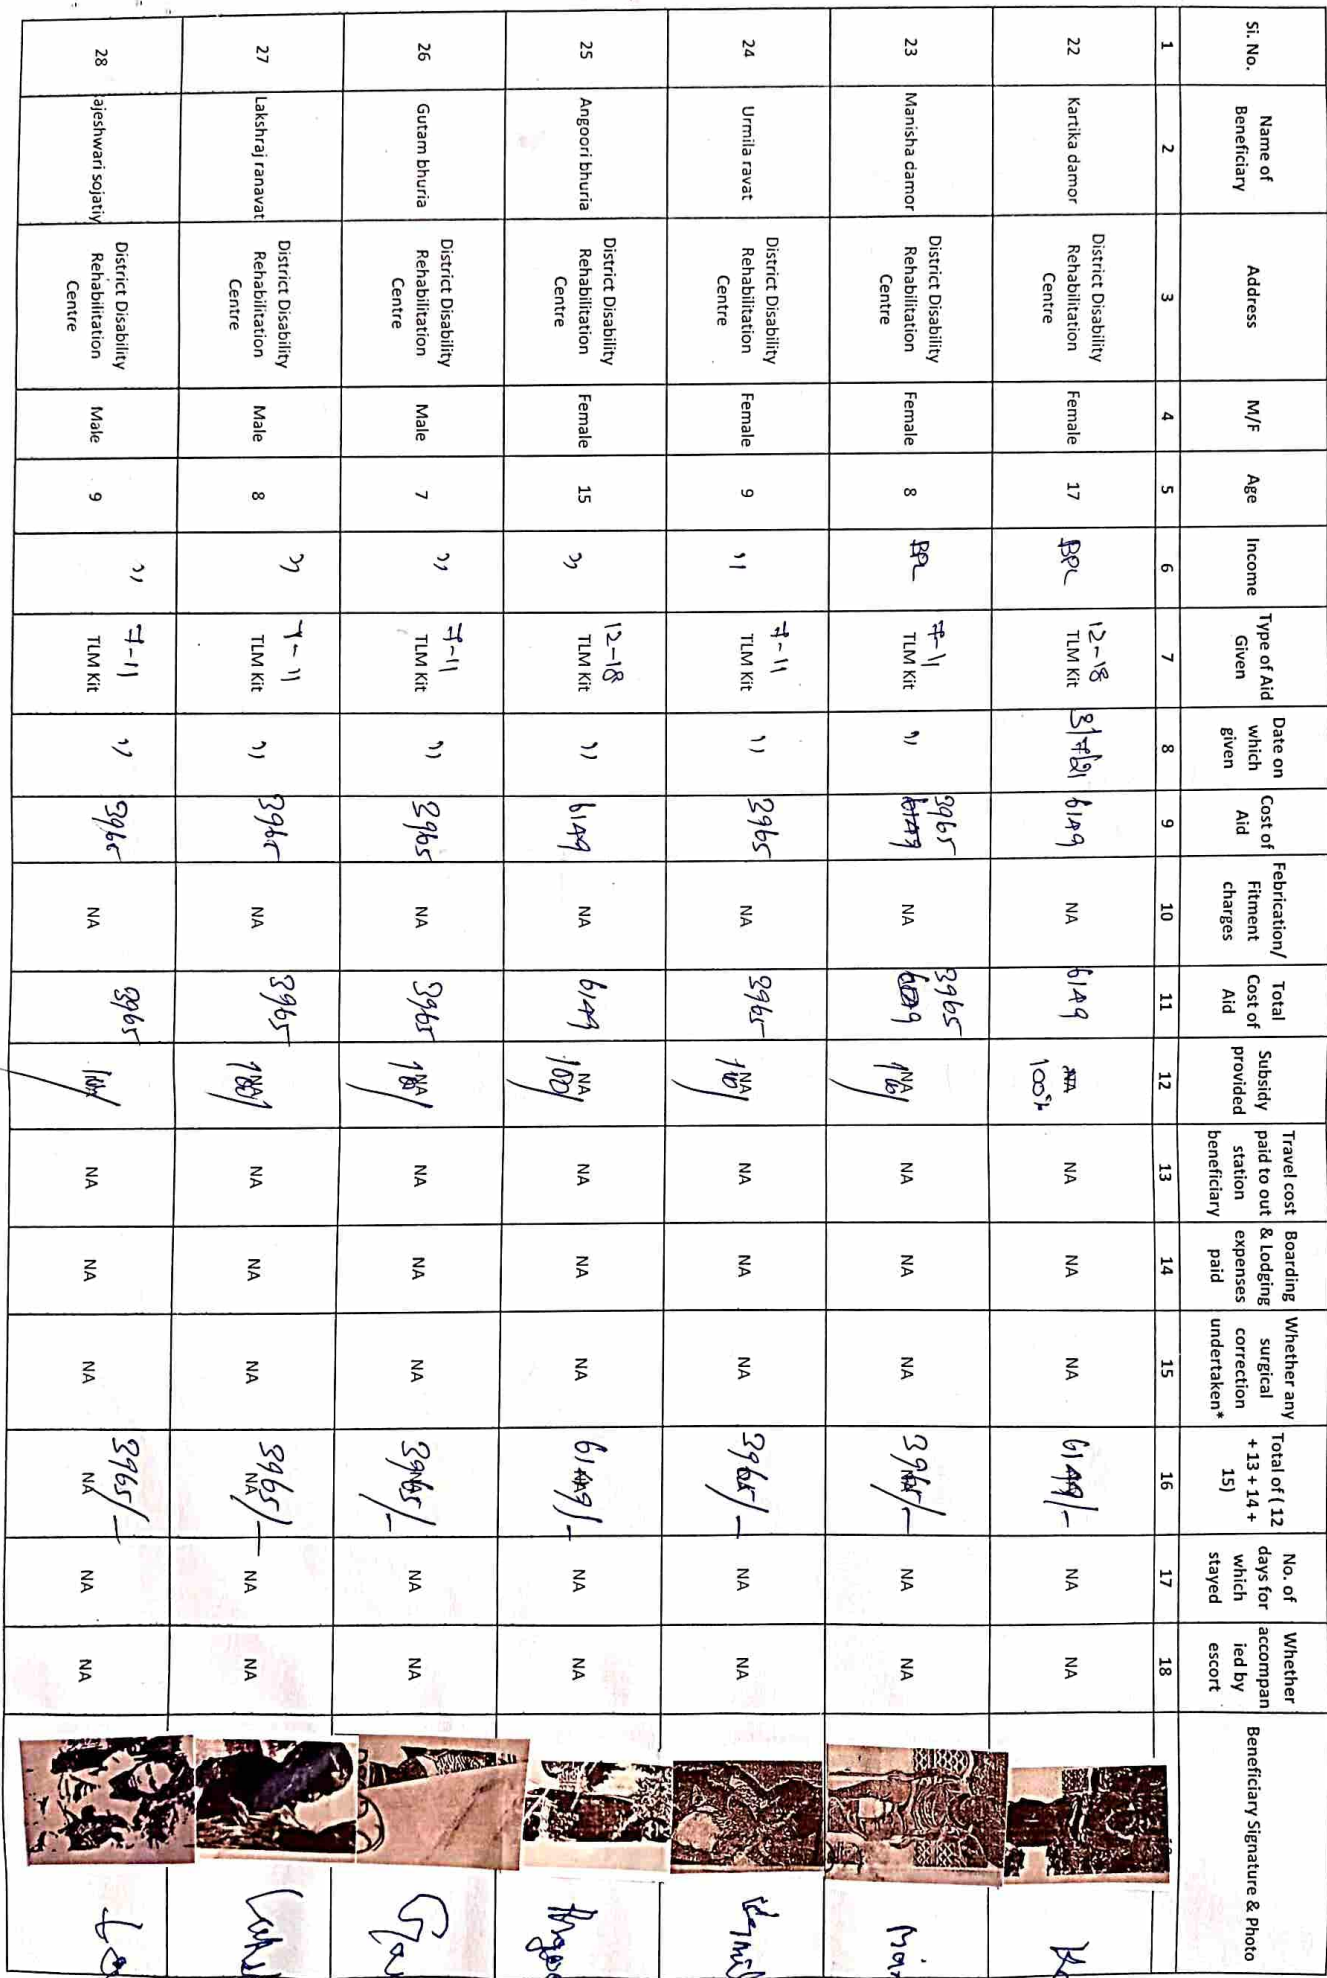 Si. No. | Name of Beneficiary | Address | M/F | Age | Income | Type of Aid Given | Date on which given | Cost of Aid | Febrication/ Fitment charges | Total Cost of Aid | Subsidy provided | Travel cost paid to out station beneficiary | Boarding & Lodging expenses paid | Whether any surgical correction undertaken* | Total of ( 12 + 13 + 14 + 15) | No. of days for which stayed | Whether accompan ied by escort | Beneficiary Signature & Photo
1 | 2 | 3 | 4 | 5 | 6 | 7 | 8 | 9 | 10 | 11 | 12 | 13 | 14 | 15 | 16 | 17 | 18
22 | Kartika damor | District Disability Rehabilitation Centre | Female | 17 | BPL | 12-18 TLM Kit | 31/7/21 | 6149 | NA | 6149 | NA 100% | NA | NA | NA | 6149/- | NA | NA
23 | Manisha damor | District Disability Rehabilitation Centre | Female | 8 | BPL | 7-11 TLM Kit | " | 3965 6149 | NA | 3965 6149 | NA 100/ | NA | NA | NA | 3965/- | NA | NA
24 | Urmila ravat | District Disability Rehabilitation Centre | Female | 9 | " | 7-11 TLM Kit | " | 3965 | NA | 3965 | NA 100/ | NA | NA | NA | 3965/- | NA | NA
25 | Angoori bhuria | District Disability Rehabilitation Centre | Female | 15 | " | 12-18 TLM Kit | " | 6149 | NA | 6149 | NA 100/ | NA | NA | NA | 6149/- | NA | NA
26 | Gutam bhuria | District Disability Rehabilitation Centre | Male | 7 | " | 7-11 TLM Kit | " | 3965 | NA | 3965 | NA 100/ | NA | NA | NA | 3965/- | NA | NA
27 | Lakshraj ranavat | District Disability Rehabilitation Centre | Male | 8 | " | 7-11 TLM Kit | " | 3965 | NA | 3965 | NA 100/ | NA | NA | NA | 3965/- NA | NA | NA
28 | ajeshwari sojatiy | District Disability Rehabilitation Centre | Male | 9 | " | 7-11 TLM Kit | " | 3965 | NA | 3965 | 100/ | NA | NA | NA | 3965/- NA | NA | NA